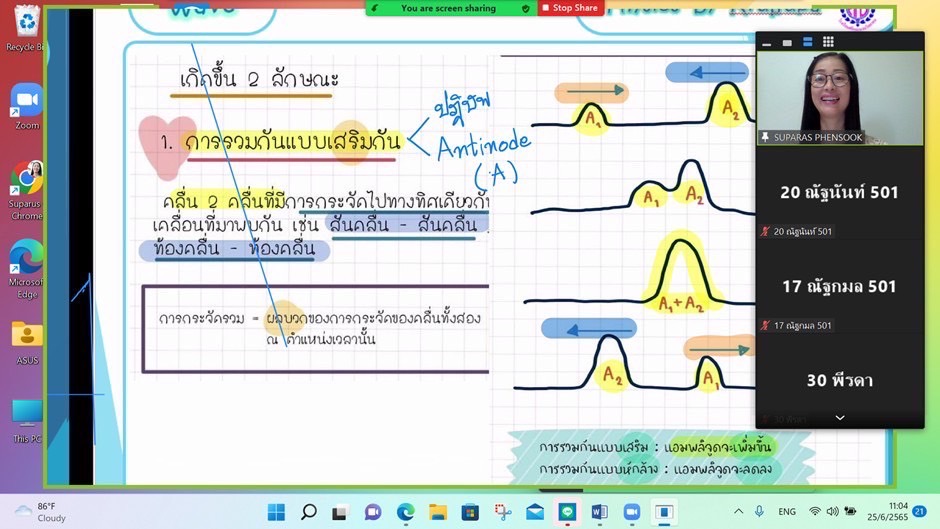 You are screen sharing
Stop Share
Recycle Bi
Zoom
Suparus
Chrome
Microsof
Edge
ASUS
This PC
เกิดขึ้น 2 ลักษณะ
1. การรวมกันแบบเสริมกัน
ปฏิบัพ
Antinode
(A)
คลื่น 2 คลื่นที่มีการกระจัดไปทางทิศเดียวกัน
เคลื่อนที่มาพบกัน เช่น สันคลื่น - สันคลื่น ,
ท้องคลื่น - ท้องคลื่น
การกระจัดรวม = ผลบวกของการกระจัดของคลื่นทั้งสอง
ณ ตำแหน่งเวลานั้น
A₁
A₂
A₁
A₂
A₁ + A₂
A₂
A₁
การรวมกันแบบเสริม : แอมพลิจูดจะเพิ่มขึ้น
การรวมกันแบบหักล้าง : แอมพลิจูดจะลดลง
SUPARAS PHENSOOK
20 ณัฐนันท์ 501
20 ณัฐนันท์ 501
17 ณัฐกมล 501
17 ณัฐกมล 501
30 พีรดา
30 พีรดา
86°F
Cloudy
ENG
11:04
25/6/2565
21